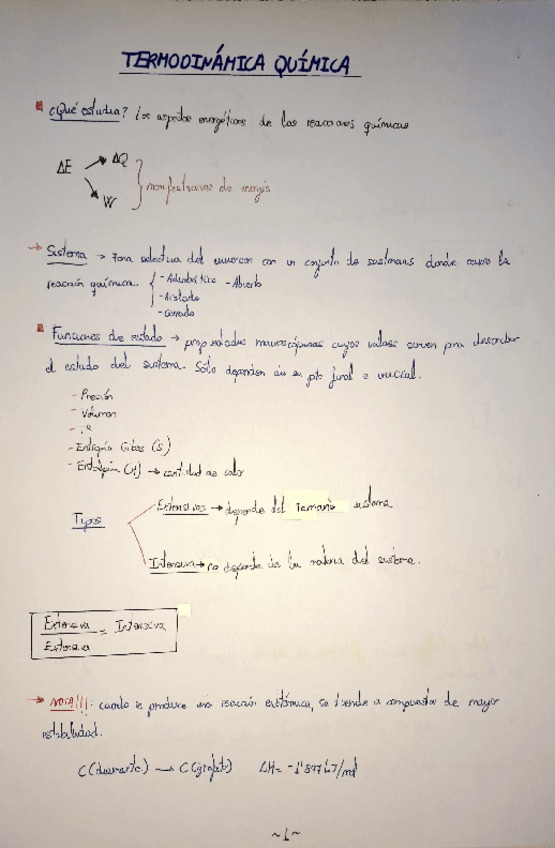 TERMODINÁMICA QUÍMICA
¿Qué estudia? Los aspectos energéticos de las reacciones químicas
ΔE → ΔQ
→ W
de energía
Sistema → Zona selectiva del universo con un conjunto de sustancias donde ocurre la
reacción química. { - Adiabático - Abierto
- Aislado
- Cerrado
Funciones de estado → propiedades macroscópicas cuyos valores sirven para describir
el estado del sistema. Sólo dependen de su pto final e inicial.
- Presión
- Volumen
- Tª
- Entropía Gibbs (S)
- Entalpía (H) → cantidad de calor
Tipos
Extensivas → depende del tamaño sistema
Intensiva → no depende de la del sistema.
Extensiva / Extensiva = Intensiva
→ NOTA!!!: cuando se produce una reacción exotérmica, se tiende a compuestos de mayor
estabilidad.
C(diamante) → C(grafito) ΔH = -1'897 kJ/mol
~1~